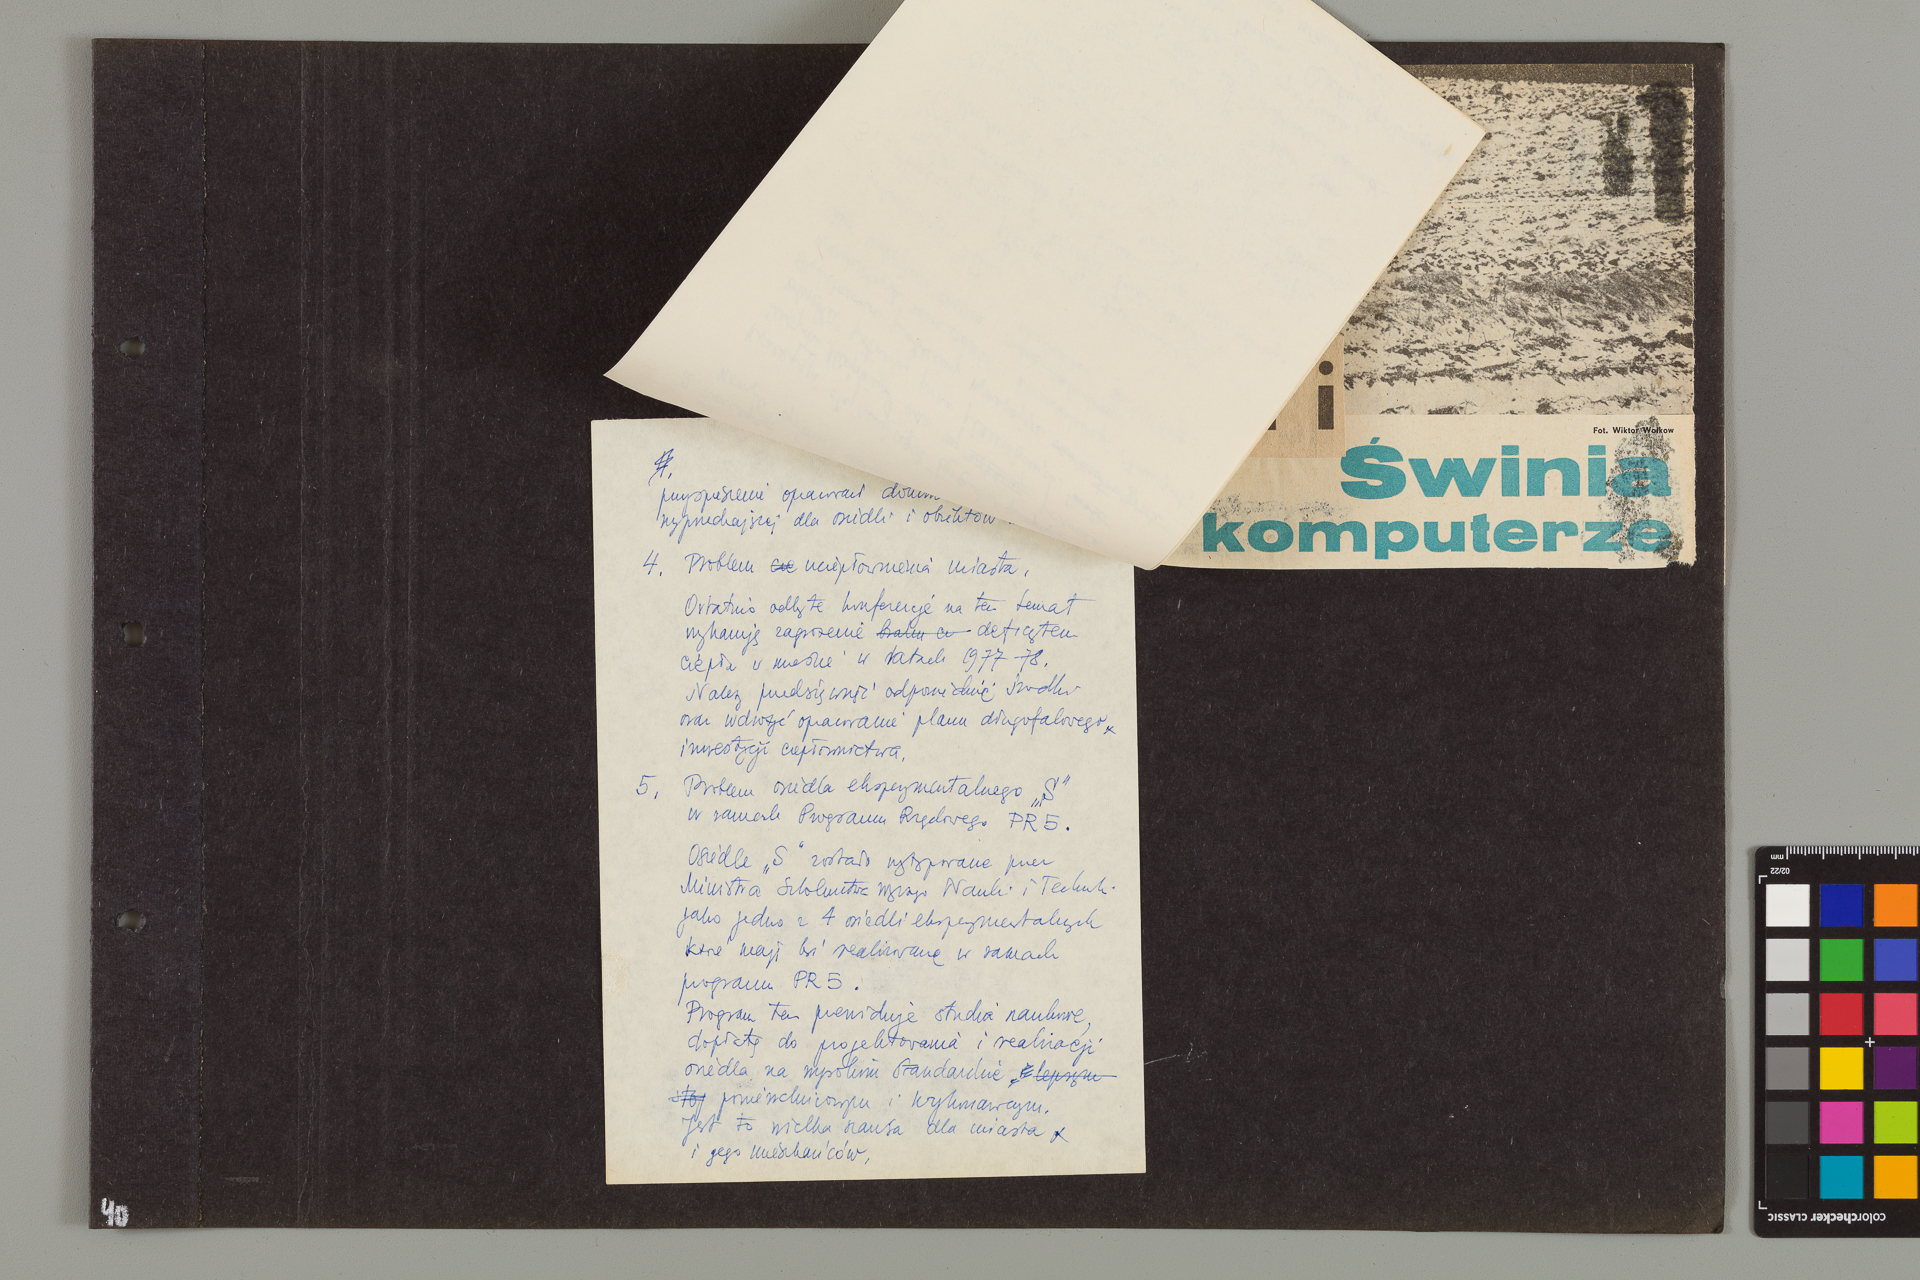 przyspieszenie opracowań
wyprzedzającej dla osiedli i obiektów.
4. Problem uciepłownienia miasta.
Ostatnio odbyte konferencje na ten temat
wykazują zagrożenie deficytem
ciepła w mieście w latach 1977-78.
Należy przedsięwziąć odpowiednie środki
oraz wdrożyć opracowanie planu długofalowego
inwestycji ciepłownictwa.
5. Problem osiedla eksperymentalnego „S"
w ramach Programu Rządowego PR5.
Osiedle „S" zostało wytypowane przez
Ministra Szkolnictwa Wyższego Nauki i Techniki
jako jedno z 4 osiedli eksperymentalnych
które mają być realizowane w ramach
programu PR5.
Program ten przewiduje studia naukowe,
dopłatę do projektowania i realizacji
osiedla na wysokim standardzie lepszym
pomieszczeniowym i wykonawczym.
Jest to wielka szansa dla miasta
i jego mieszkańców.
i
Fot. Wiktor Wołkow
Świnia
komputerze
40
mm
02/22
colorchecker CLASSIC